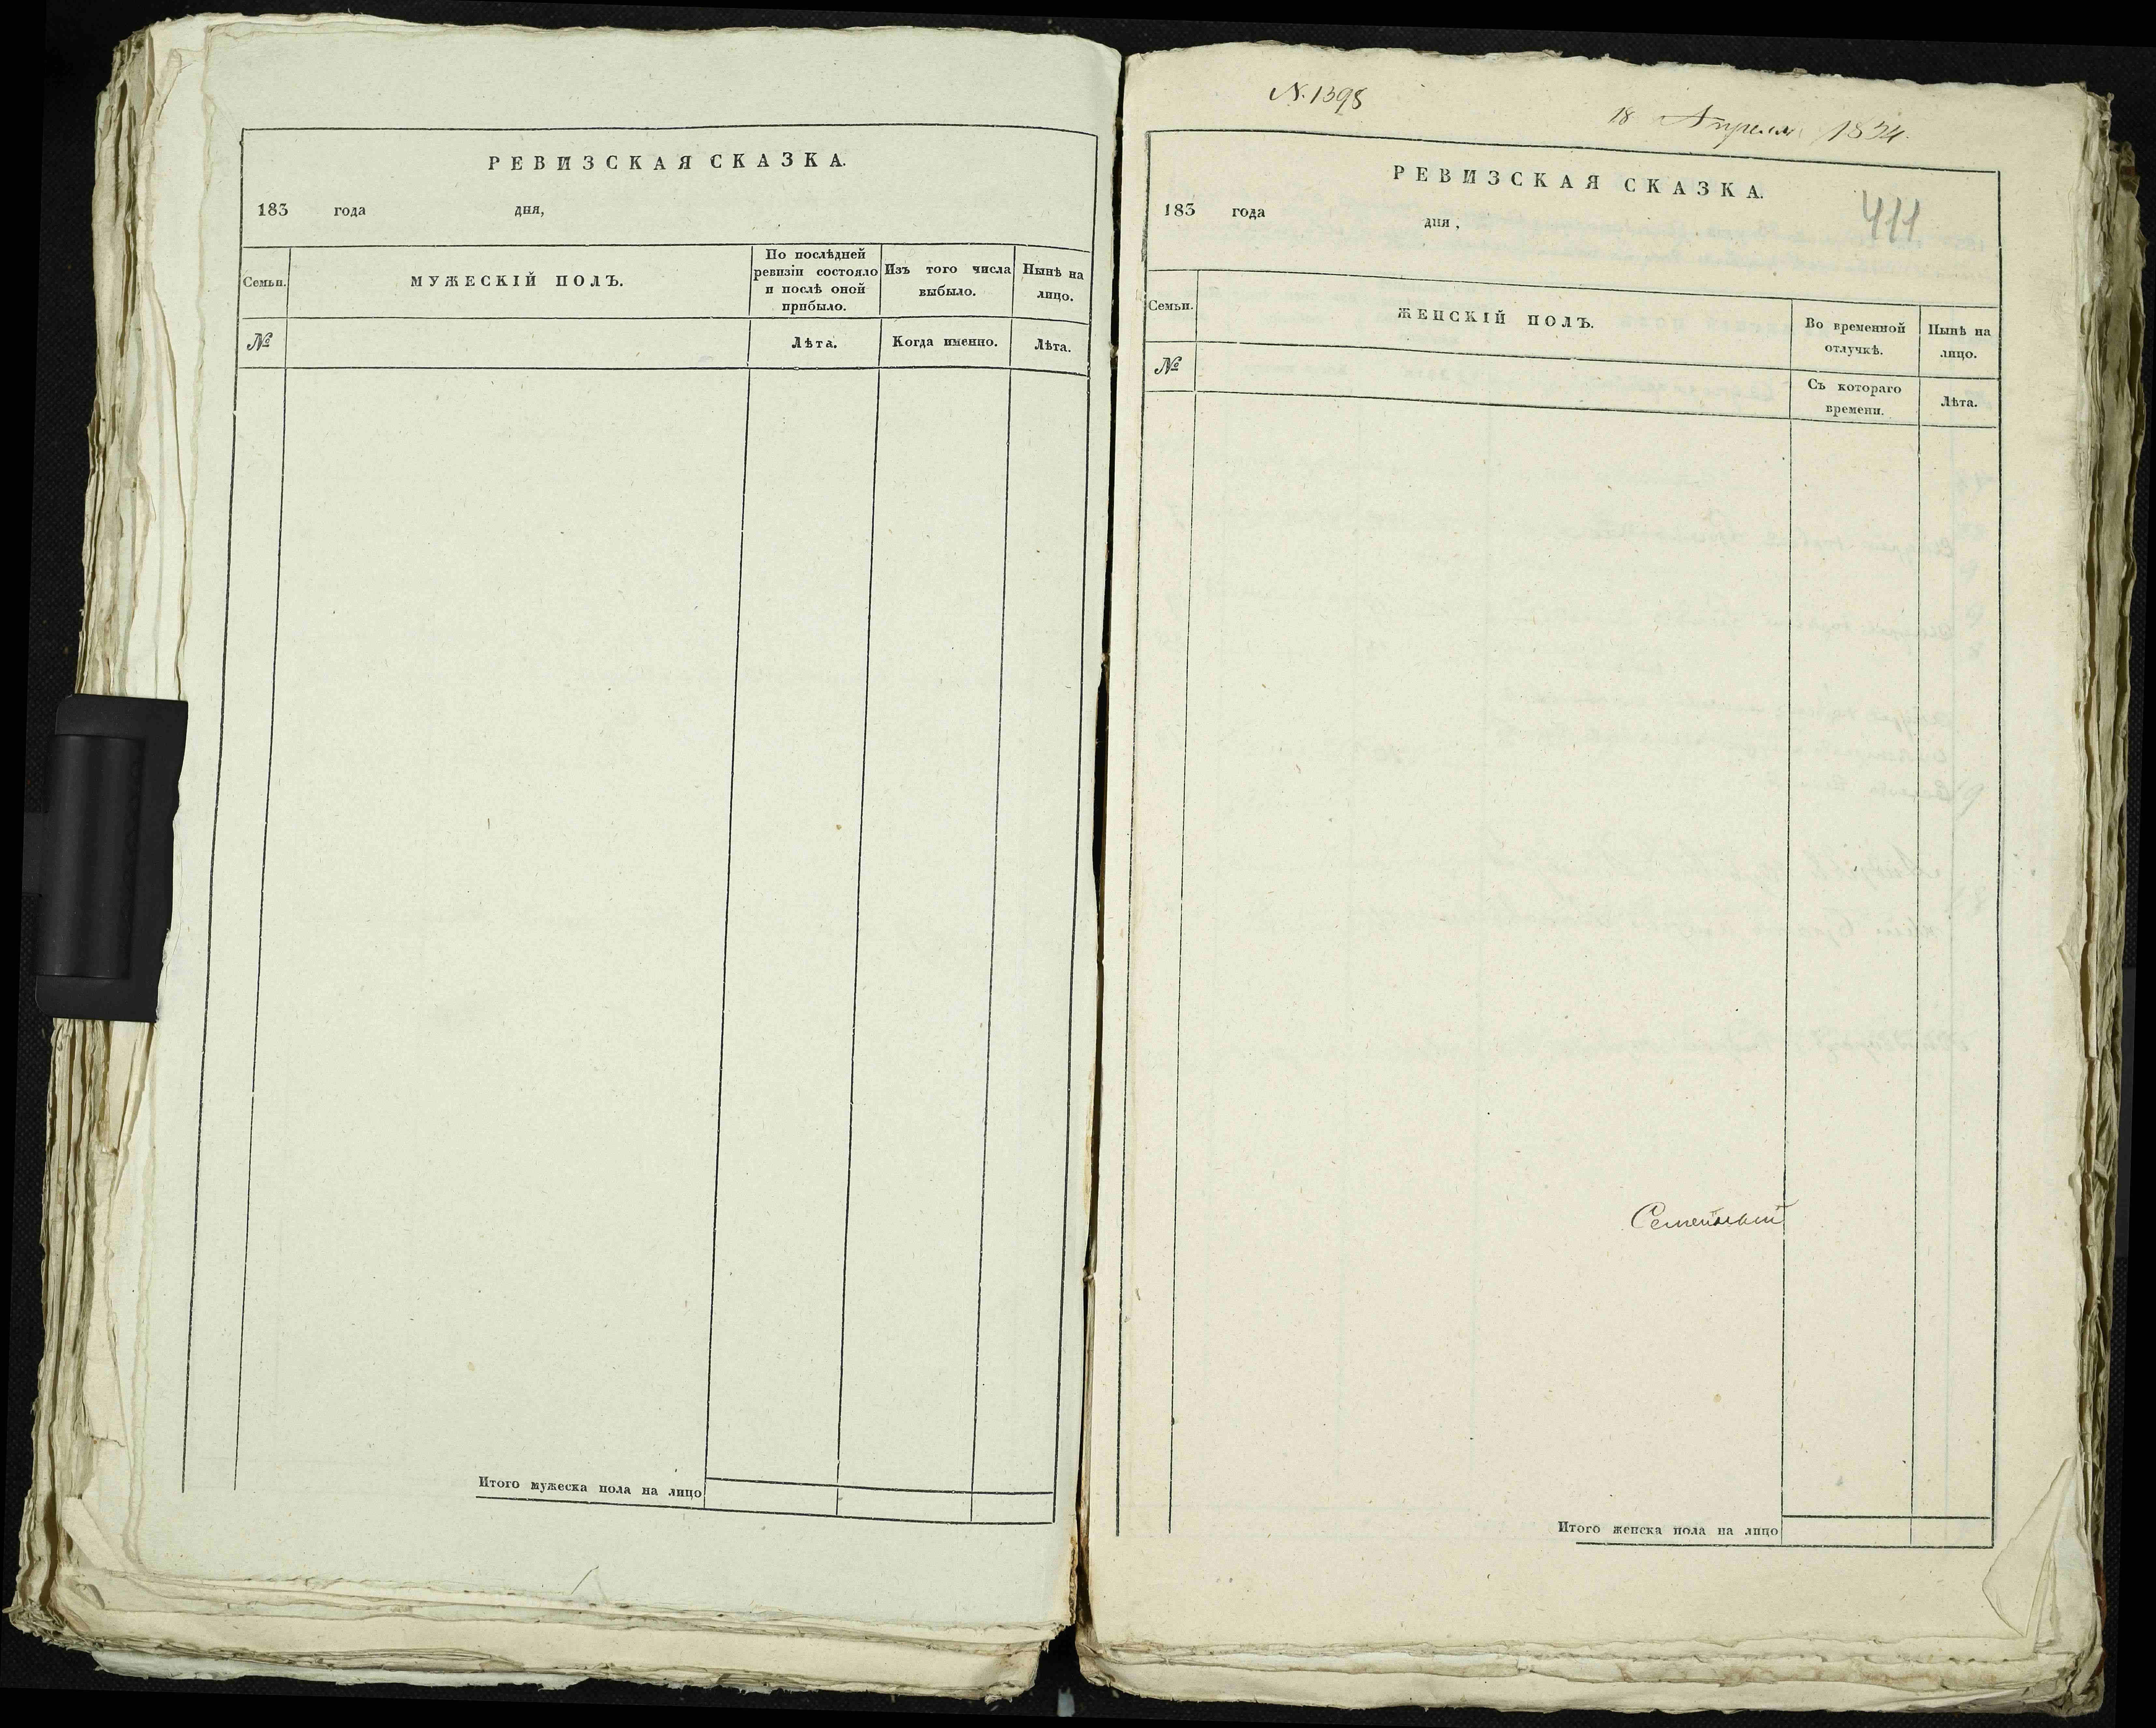 РЕВИЗСКАЯ СКАЗКА.
183 года дня,
Семьи.
МУЖЕСКІЙ ПОЛЪ.
По послѣдней
ревизіи состояло
и послѣ оной
прибыло.
Изъ того числа
выбыло.
Нынѣ на
лицо.
№
Лѣта.
Когда именно.
Лѣта.
Итого мужеска пола на лицо
N. 1398
18 Апреля 1834.
РЕВИЗСКАЯ СКАЗКА.
411
183 года дня,
Семьи.
ЖЕНСКІЙ ПОЛЪ.
Во временной
отлучкѣ.
Нынѣ на
лицо.
№
Съ котораго
времени.
Лѣта.
Итого женска пола на лицо